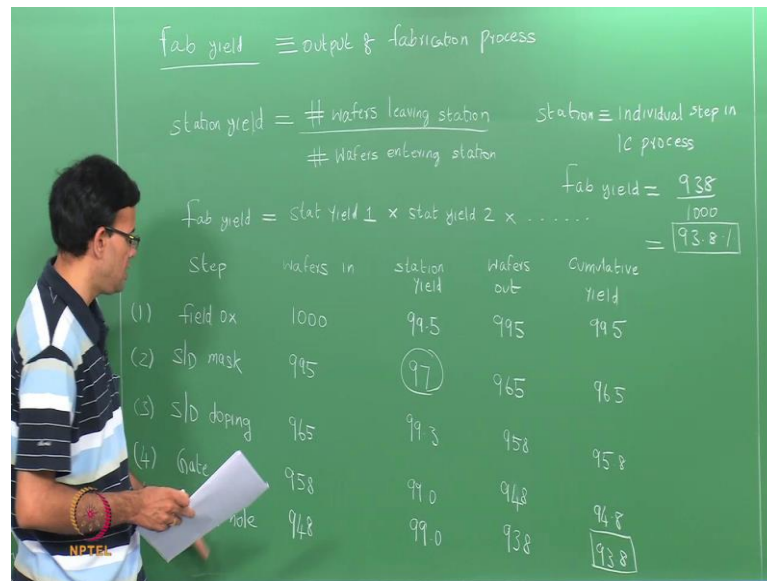 fab yield ≡ output of fabrication process
station yield = # wafers leaving station
# wafers entering station
station ≡ Individual step in
IC process
fab yield = 938
1000
= 93.8%
fab yield = stat yield 1 × stat yield 2 × ......
Step wafers in station yield wafers out Cumulative yield
(1) field ox 1000 99.5 995 99.5
(2) S/D mask 995 97 965 96.5
(3) S/D doping 965 99.3 958 95.8
(4) Gate 958 99.0 948 94.8
hole 948 99.0 938 93.8
NPTEL